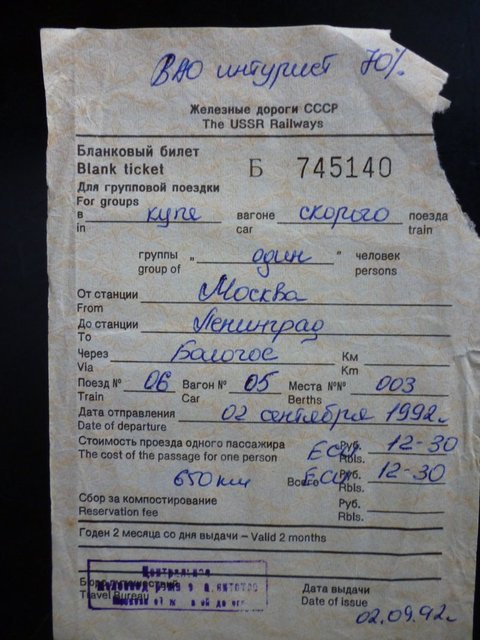 ВАО интурист 70%
Железные дороги СССР
The USSR Railways
Бланковый билет
Blank ticket
Б 745140
Для групповой поездки
For groups
в купе вагоне скорого поезда
in car train
группы „ один " человек
group of persons
От станции Москва
From
До станции Ленинград
To
Через Бологое Км
Via Km
Поезд № 06 Вагон № 05 Места №№ 003
Train Car Berths
Дата отправления 02 сентября 1992г
Date of departure
Стоимость проезда одного пассажира Руб. 12-30
The cost of the passage for one person Rbls.
650 км Всего Руб. 12-30
Rbls.
Сбор за компостирование Руб.
Reservation fee Rbls.
Годен 2 месяца со дня выдачи – Valid 2 months
Центральное
Бюро путешествий Дата выдачи
Travel Bureau Date of issue
02.09.92г